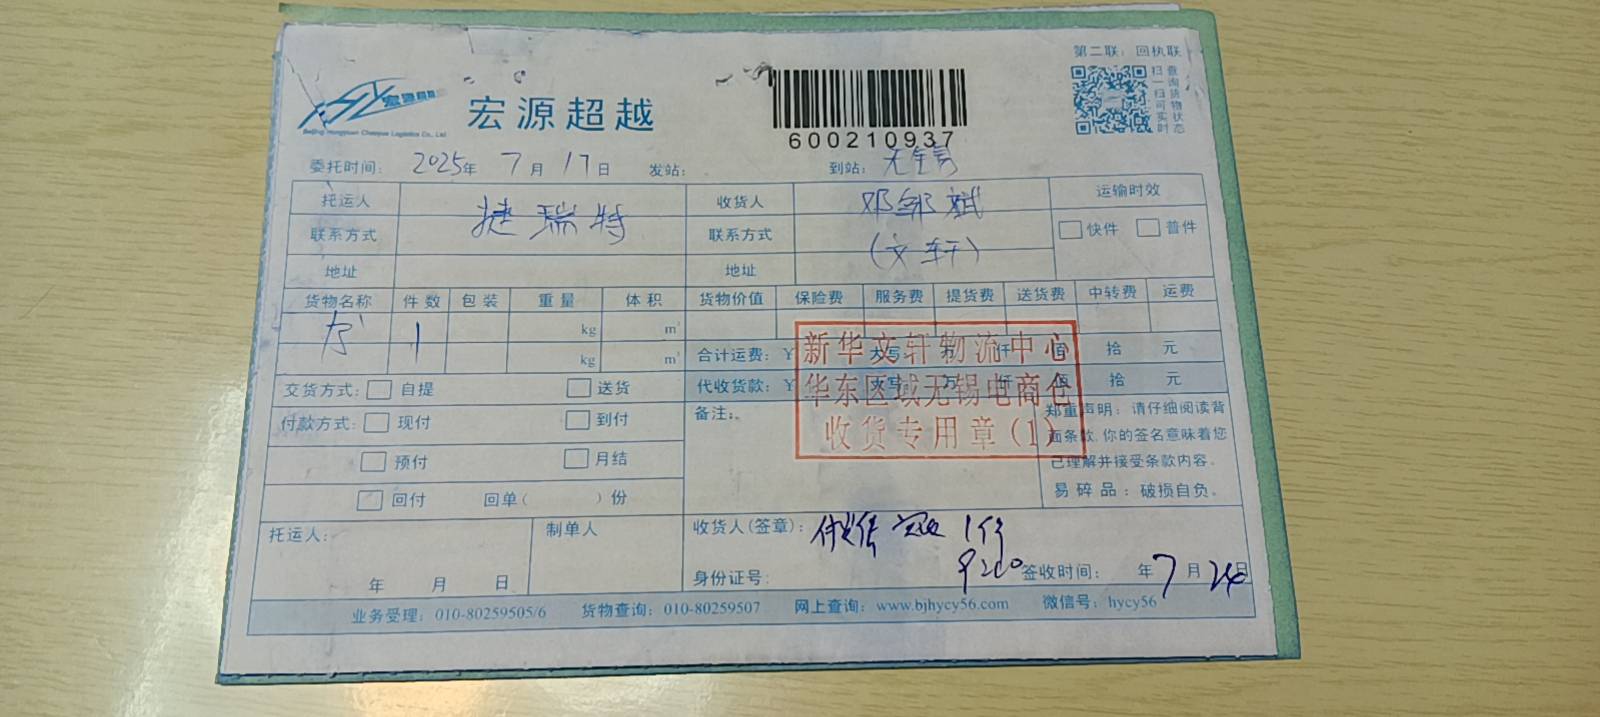 第二联：回执联
宏源超越
Beijing Hongyuan Chaoyue Logistics Co., Ltd
宏源超越
600210937
扫一扫可实时
查询货物状态
委托时间： 2025年 7月 17日 发站： 到站： 无锡
托运人 捷瑞特 收货人 邓邹斌 运输时效
联系方式 联系方式 (文轩) 快件 普件
地址 地址
货物名称 件数 包装 重量 体积 货物价值 保险费 服务费 提货费 送货费 中转费 运费
书 1 kg m³
kg m³ 合计运费：￥ 大写 万 仟 佰 拾 元
交货方式： 自提 送货 代收货款：￥ 大写 万 仟 佰 拾 元
新华文轩物流中心
华东区域无锡电商仓
收货专用章(1)
付款方式： 现付 到付 备注：
预付 月结
回付 回单( )份
郑重声明：请仔细阅读背
面条款,你的签名意味着您
已理解并接受条款内容。
易碎品：破损自负。
托运人： 制单人 收货人(签章)： 实收 1件
年 月 日 身份证号： 签收时间： 年 7月 24日
业务受理：010-80259505/6 货物查询：010-80259507 网上查询：www.bjhycy56.com 微信号：hycy56